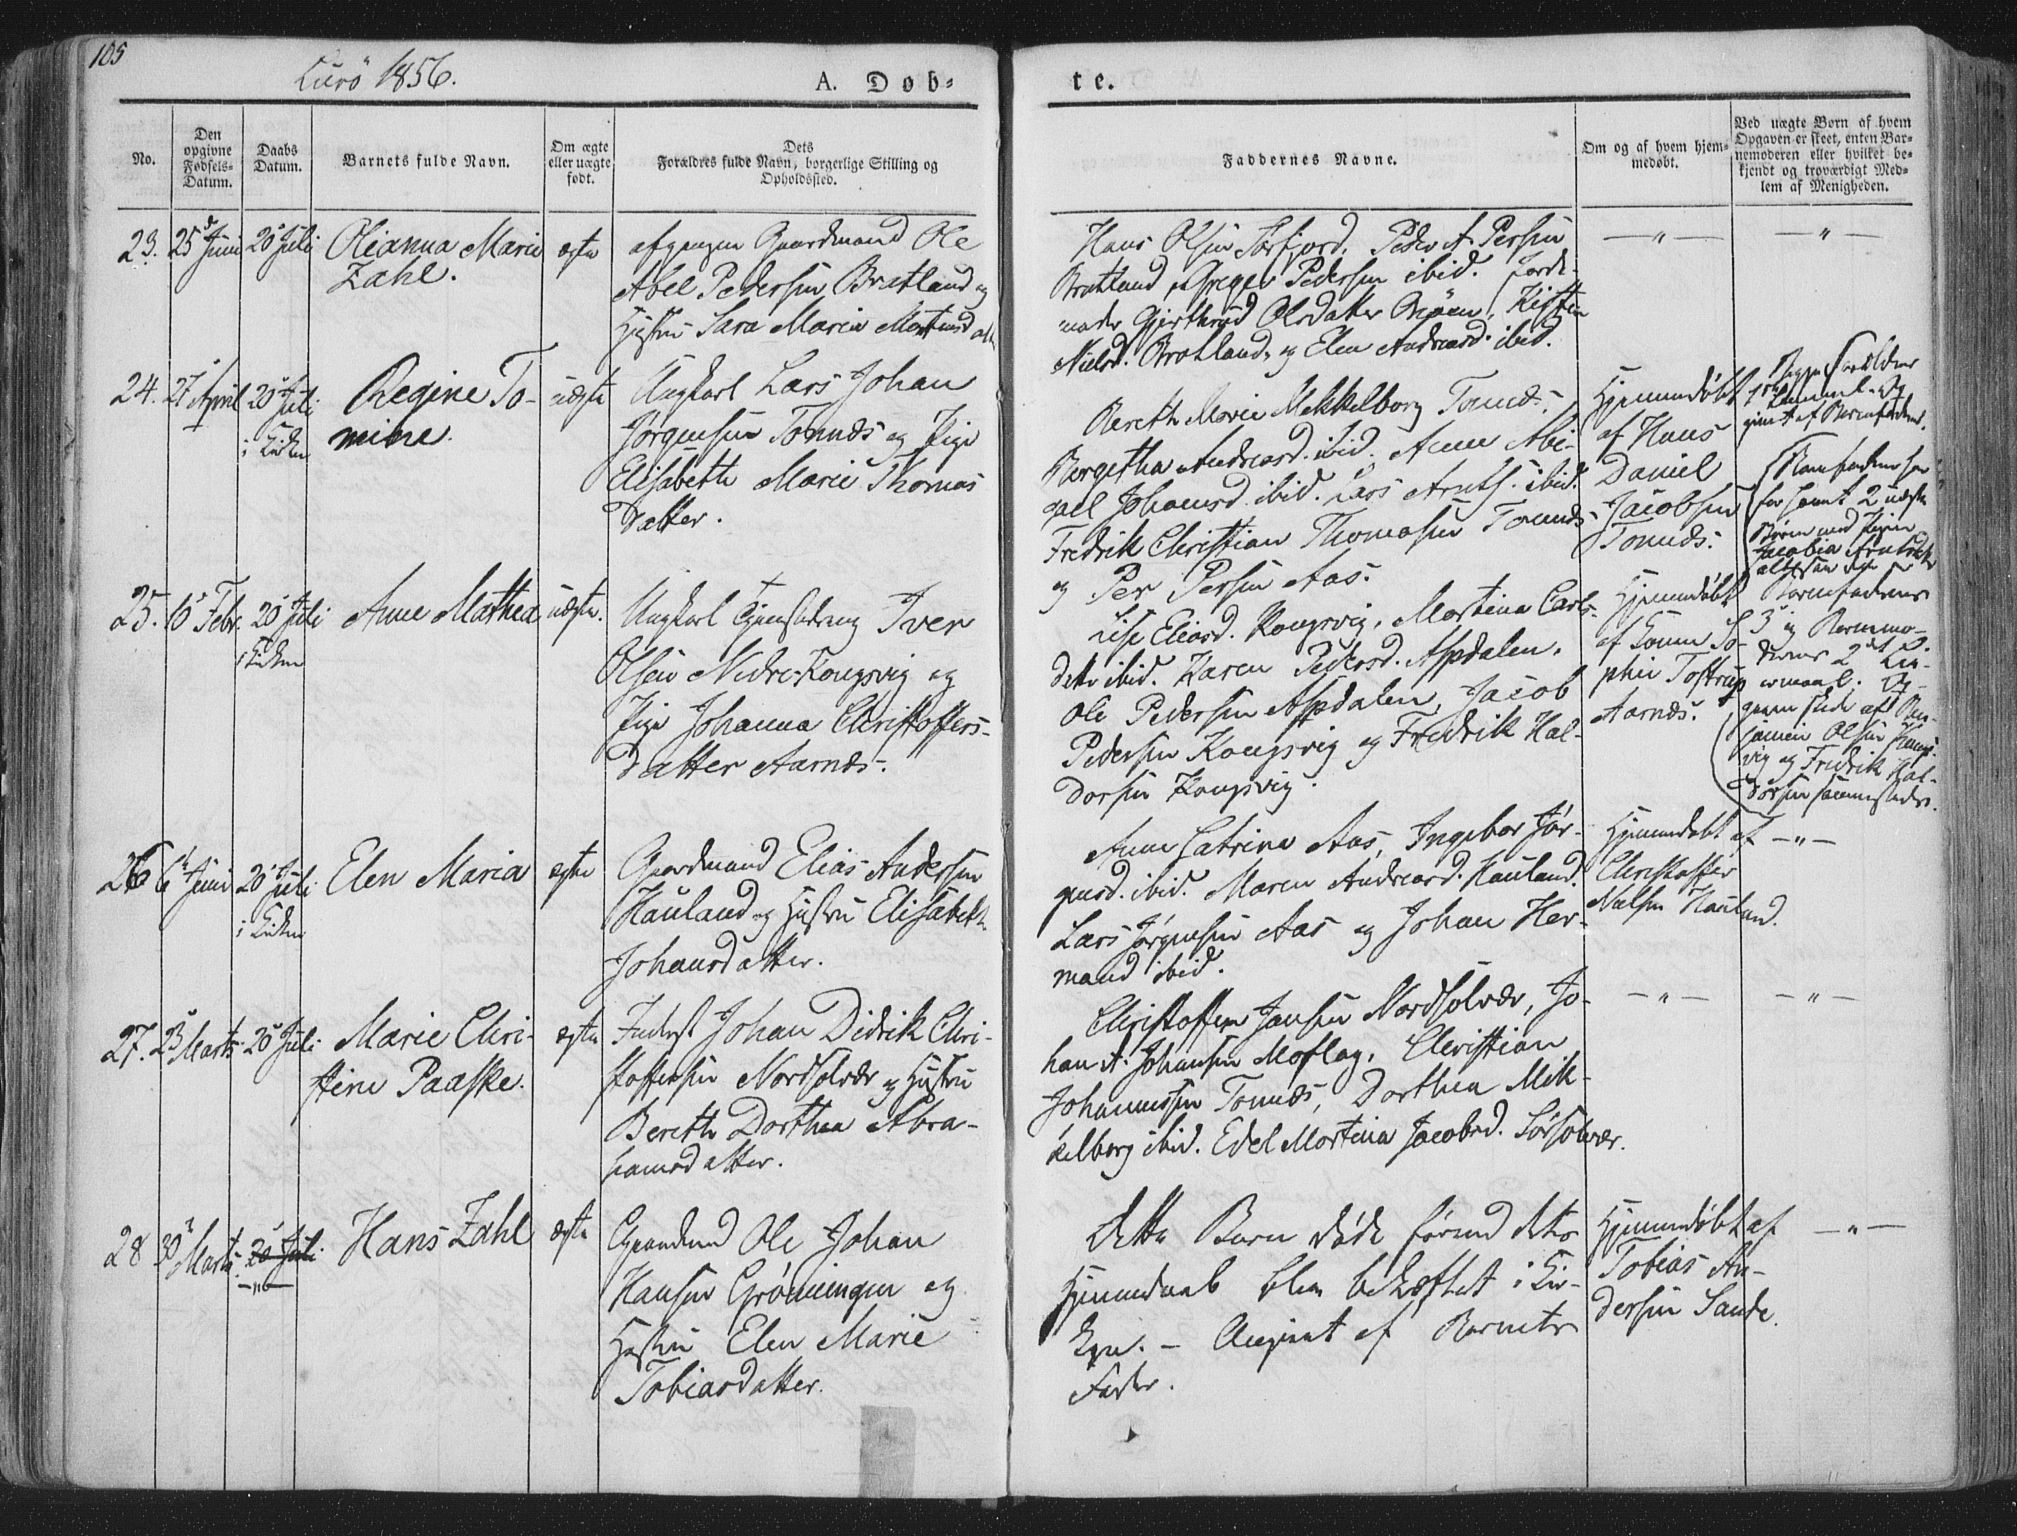 105
Lurö 1856.
A. Døb-
te.
No.
Den opgivne Fødsels-Datum.
Daabs Datum.
Barnets fulde Navn.
Om ægte eller uægte født.
Dets Forældres fulde Navn, borgerlige Stilling og Opholdssted.
Faddernes Navne.
Om og af hvem hjem-medøbt.
Ved uægte Børn af hvem Opgaven er skeet, enten Bar-nemoderen eller hvilket be-kjendt og troværdigt Med-lem af Menigheden.
23. 25 Juni 20 Juli Olianna Marie ægte
Zahl.
Gaardmand Ole
Abel Pedersen Bratland og
Hustru Sara Maria
Hans Olsen Sørfjord, Peder A. Persen
Bratland, Greger Pedersen ibid. Jorde-
moder Gjerthrud Olsdatter
Nielsd. Bratland, og Elen Andreasd. ibid.
— " —
— " —
24. 27 April 20 Juli
i Kirken
Regine To-
mine.
uægte
Ungkarl Lars Johan
Jørgensen Tonnæs og Pige
Elisabeth Marie Thomas
Datter.
Bereth Marie Mekkelborg Tonnæs,
Bergetha Andreasd. ibid. Anne Abi-
gael Johansd. ibid. Lars Arntz. ibid.
Fredrik Christian Thomasen Tonnæs
og Per Persen Aas.
Hjemmedøbt
af Hans
Daniel
Jacobsen
Tonnæs.
Begge Forældres
1ste
af Barnefaderen.
Barnefaderen
for havt 2 uægte
Børn med Pigen
Jacobia
25. 10 Febr. 20 Juli
i Kirken
Anne Mathea uægte.
Ungkarl Tjenestedreng Iver
Olsen Nedre-Kongsvig og
Pige Johanna Christoffers-
Datter Aarnæs.
Lise Eliasd. Kongsvig, Martina Carls-
datter ibid. Karen Pedersd. Aspdalen,
Ole Pedersen Aspdalen, Jacob
Pedersen Kongsvig og Fredrik Hal-
dorsen Kongsvig.
Hjemmedøbt
af So-
phie Tostrup
Aarnæs.
Barnefaderens
3 og Barnemo-
derens 2det Lei-
ermaal. Op-
given skede af Ben-
jamin Olsen Kongs-
vig og Fredrik Hal-
dorsen sammesteds.
26 6 Juni 20 Juli
i Kirken
Elen Maria ægte
Gaardmand Elias Andersen
Hauland og Hustru Elisabeth
Johansdatter.
Anne Catrina Aas, Ingebor Jør-
gensd. ibid. Maren Andreasd. Hauland.
Lars Jørgensen Aas og Johan Her-
mand ibid.
Hjemmedøbt af
Christoffer
Nielsen Hauland.
— " —
27. 23 Marts 20 Juli Marie Chri-
stine Paaske.
ægte
Inderst Johan Didrik Chri-
stoffersen Nordsolvær og Hustru
Bereth Dorthea Abra-
hamsdatter.
Christoffer Jansen Nordsolvær, Jo-
han A. Johansen Moflag, Christian
Johannessen Tonnæs, Dorthea Mik-
kelborg ibid. Edel Martina Jacobsd. Sørsolvær.
— " —
— " —
28 30 Marts 20 Juli
— " —
Hans Zahl ægte
Gaardmd Ole Johan
Hansen Grønningen og
Hustru Elen Marie
Tobiasdatter.
Dette Barn døde førend dets
Hjemmedaab blev bekræftet i Kir-
ken. – Angivet af Barnets
Fader.
Hjemmedøbt af
Tobias An-
dersen Sande.
— " —